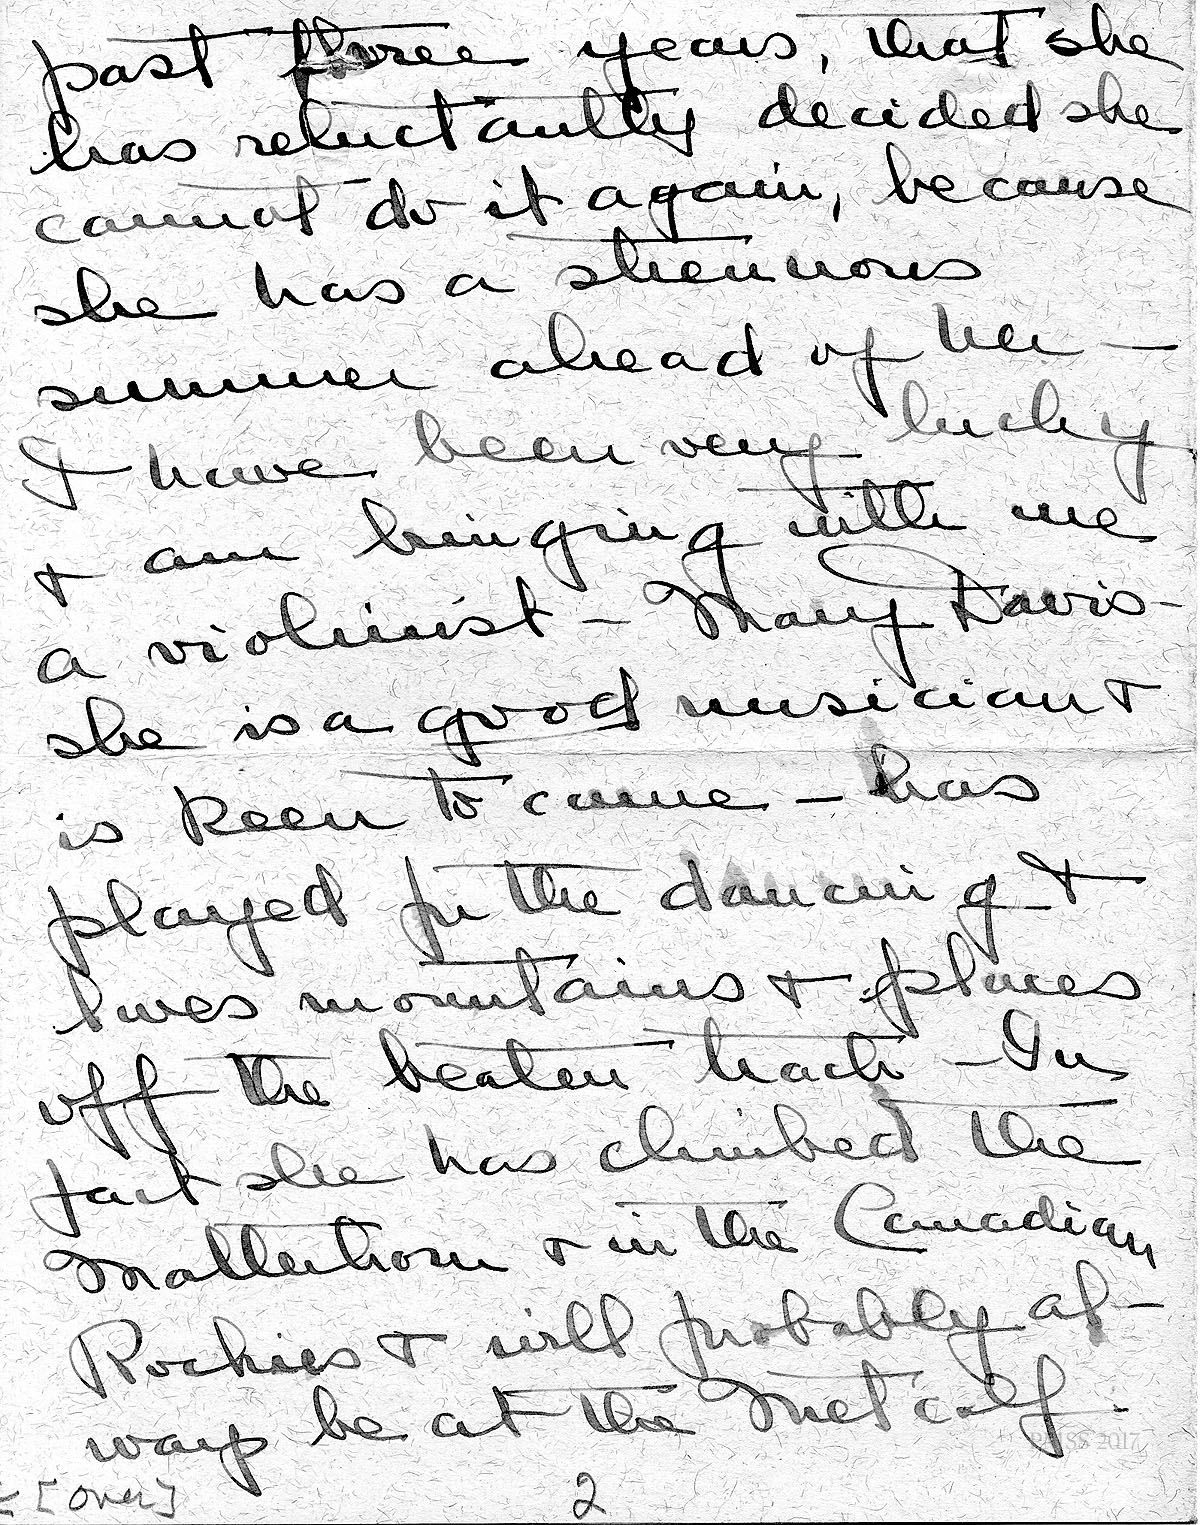 past three years, that she
has reluctantly decided she
cannot do it again, because
she has a strenuous
summer ahead of her —
I have been very lucky
& am bringing with me
a violinist – Mary Davis –
she is a good musician &
is keen to come – has
played for the dancing &
loves mountains & places
off the beaten track – In
fact she has climbed the
Matterhorn & in the Canadian
Rockies & will probably al-
ways be at the Metcalf.
[over] 2
PMSS 2017